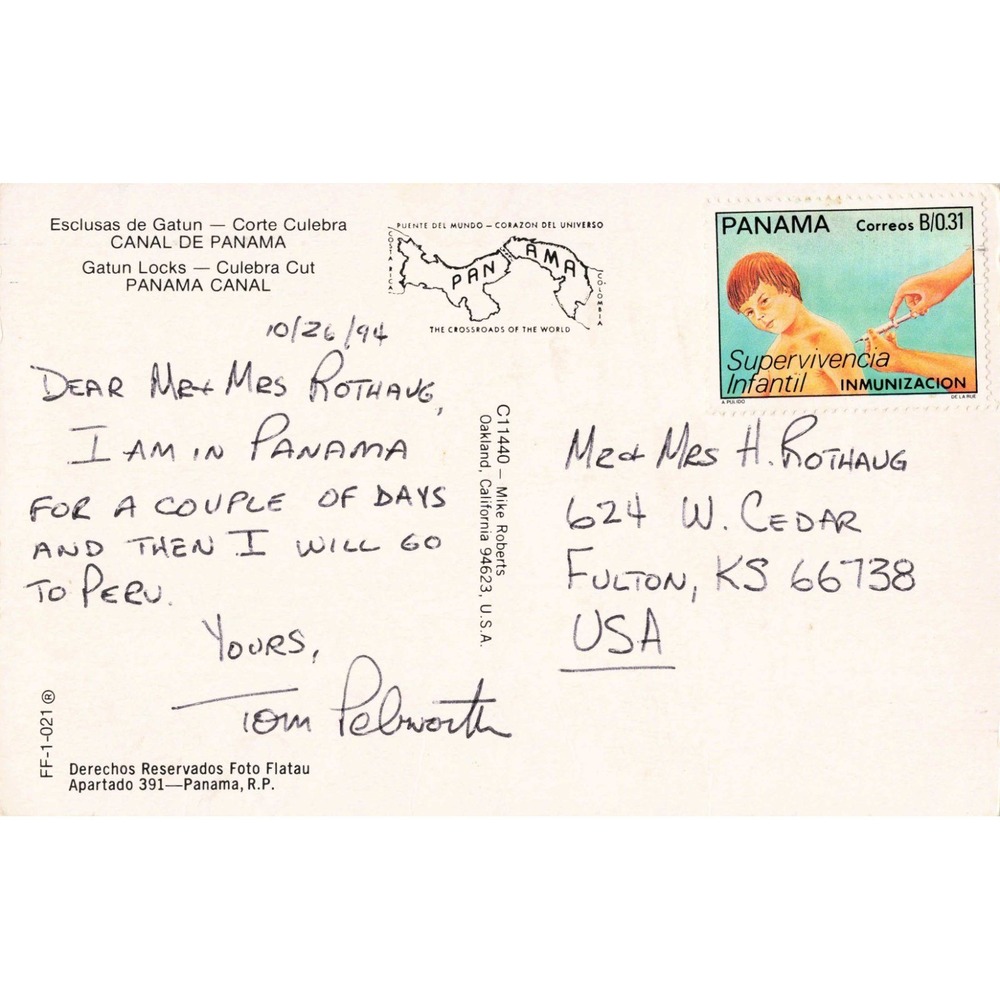 Esclusas de Gatun — Corte Culebra
CANAL DE PANAMA
Gatun Locks — Culebra Cut
PANAMA CANAL
PUENTE DEL MUNDO – CORAZON DEL UNIVERSO
COSTA RICA
PANAMA
COLOMBIA
THE CROSSROADS OF THE WORLD
PANAMA Correos B/0.31
Supervivencia
Infantil INMUNIZACION
A. PULIDO DE LA RUE
10/26/94
DEAR MR + MRS ROTHAUG,
I AM IN PANAMA
FOR A COUPLE OF DAYS
AND THEN I WILL GO
TO PERU.
YOURS,
TOM Pebworth
C11440 — Mike Roberts
Oakland, California 94623, U.S.A.
MR + MRS H. ROTHAUG
624 W. CEDAR
FULTON, KS 66738
USA
FF-1-021 ®
Derechos Reservados Foto Flatau
Apartado 391—Panama, R.P.